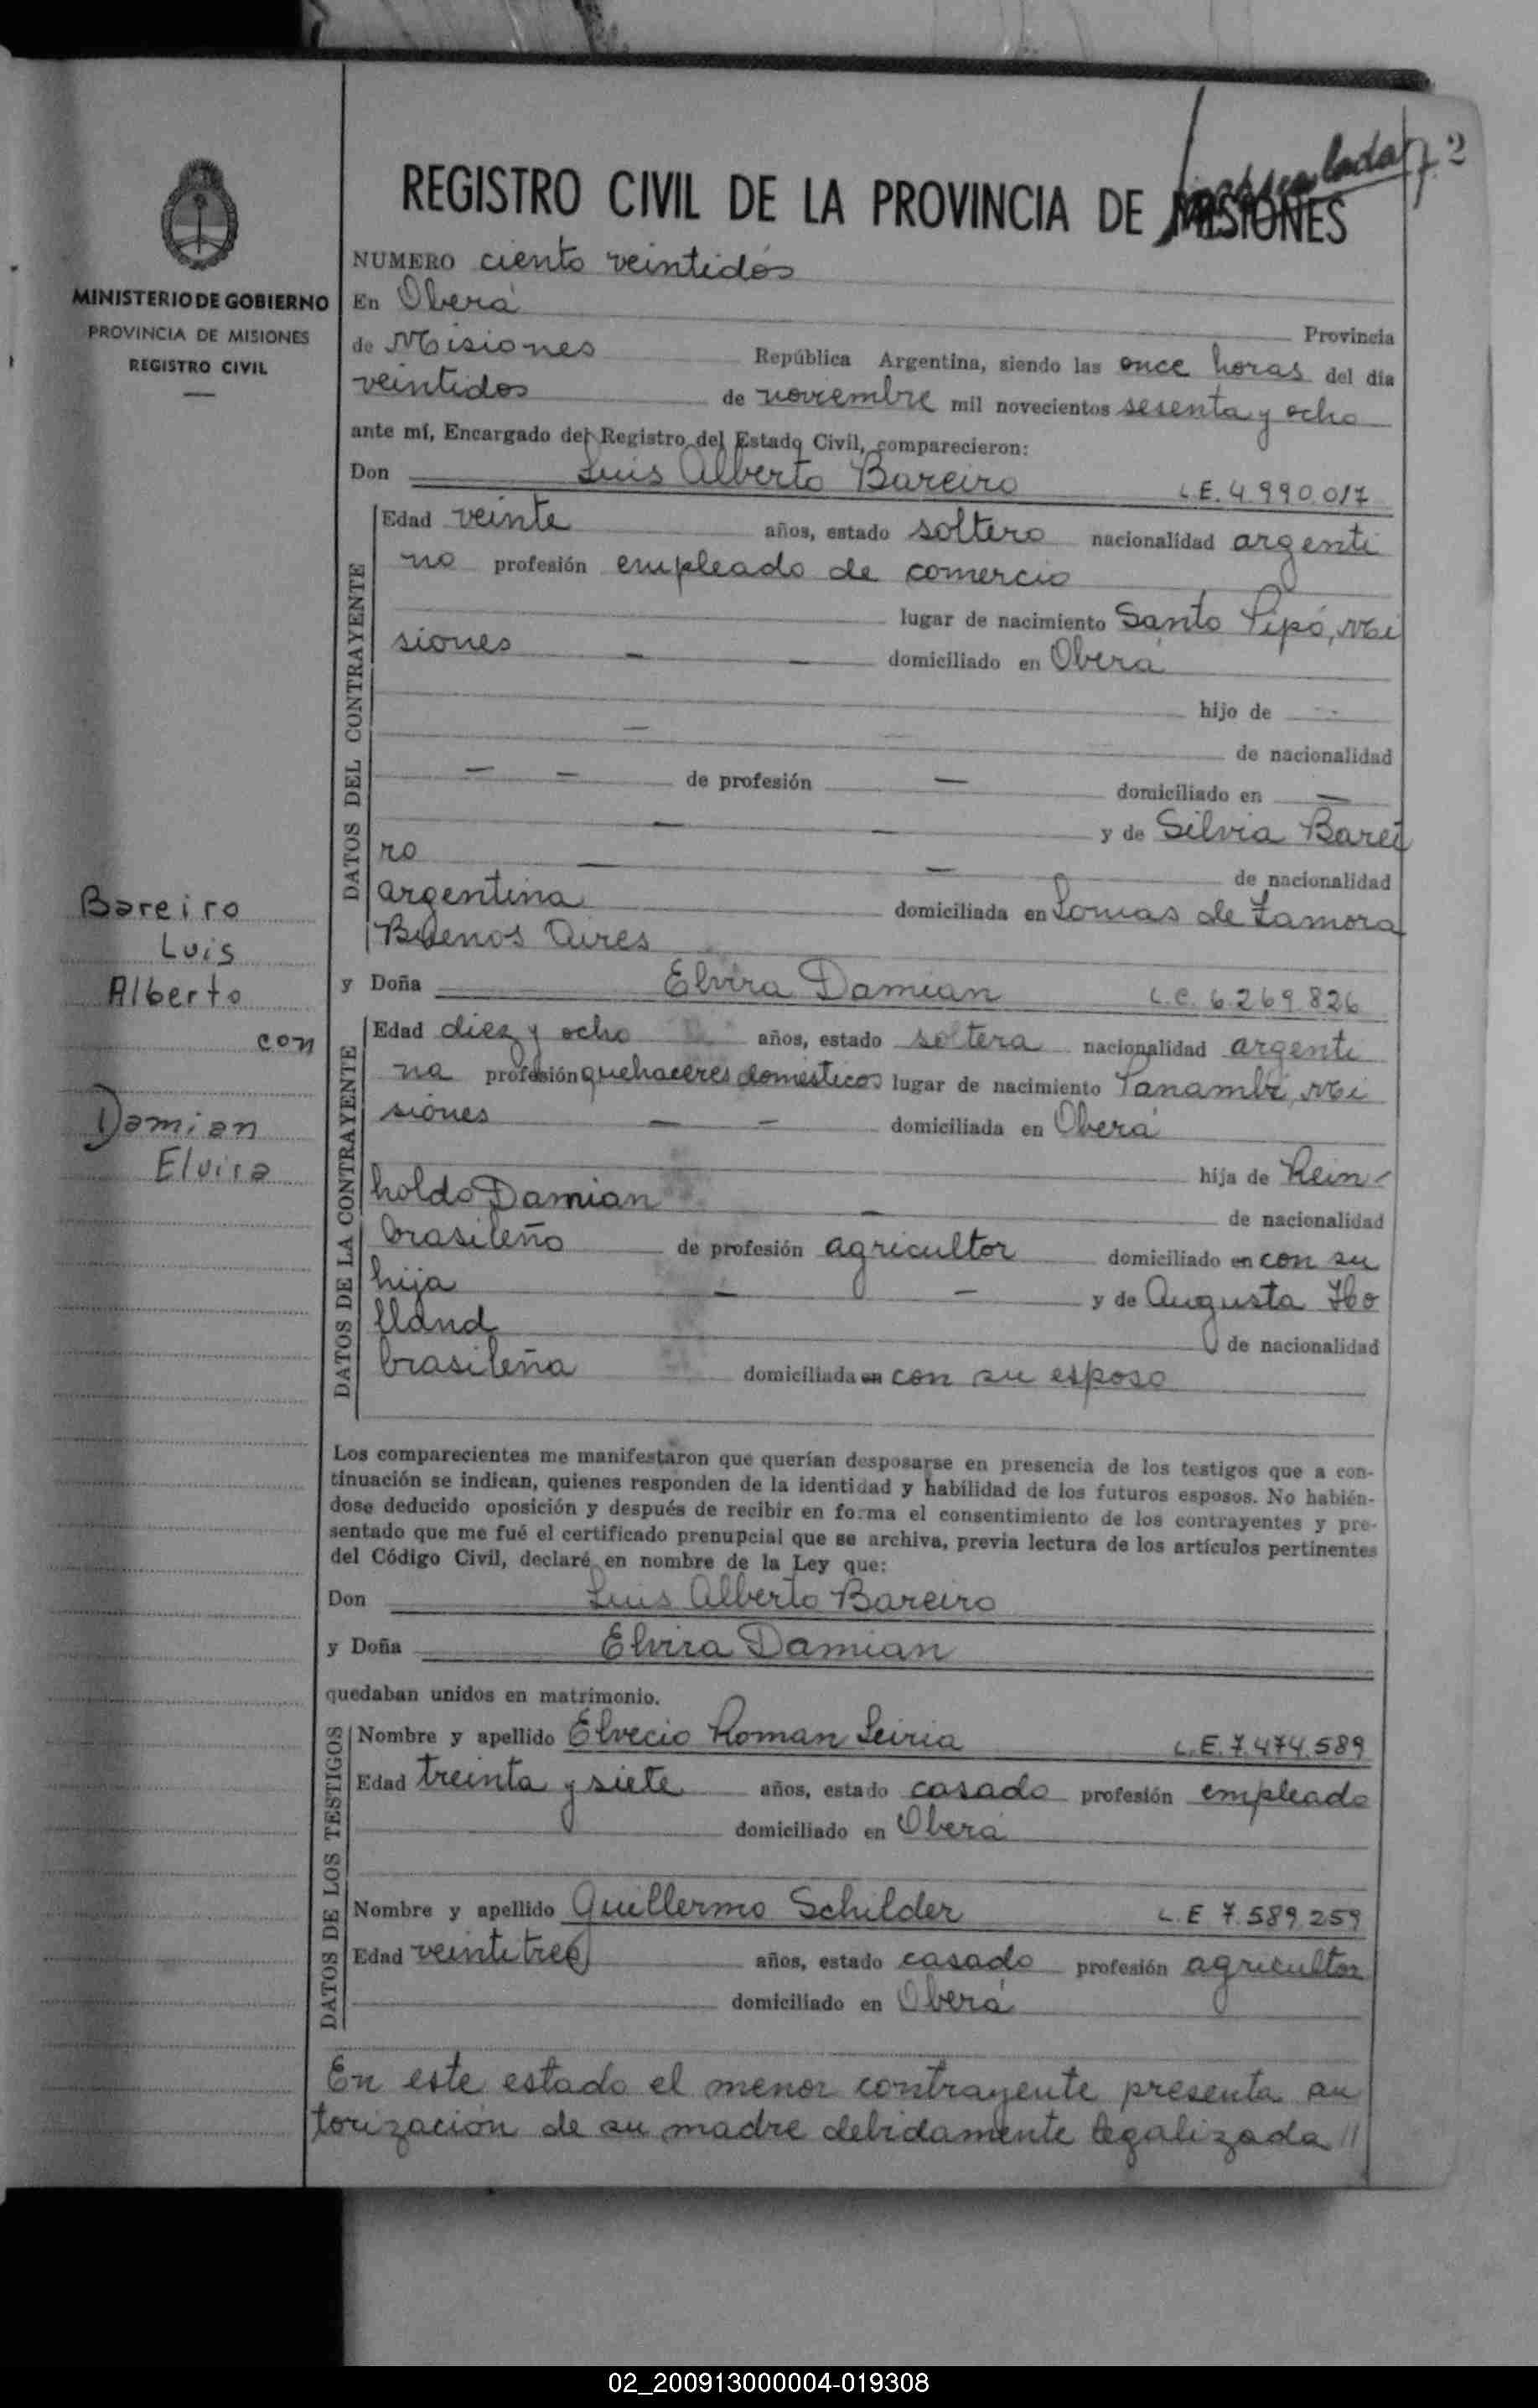 2
REGISTRO CIVIL DE LA PROVINCIA DE MISIONES
MINISTERIO DE GOBIERNO
PROVINCIA DE MISIONES
REGISTRO CIVIL
NUMERO ciento veintidós
En Oberá Provincia
de Misiones República Argentina, siendo las once horas del día
veintidos de noviembre mil novecientos sesenta y ocho
ante mí, Encargado del Registro del Estado Civil, comparecieron:
Don Luis Alberto Bareiro L.E. 4.990.017
DATOS DEL CONTRAYENTE
Edad veinte años, estado soltero nacionalidad argenti
no profesión empleado de comercio
lugar de nacimiento Santo Pipó, Mi
siones — — domiciliado en Oberá
hijo de
de nacionalidad
— — de profesión — domiciliado en —
— — y de Silvia Barei
ro — — de nacionalidad
argentina domiciliada en Lomas de Zamora
Buenos Aires
Bareiro
Luis
Alberto
con
Damian
Elvira
y Doña Elvira Damian L.C. 6.269.826
DATOS DE LA CONTRAYENTE
Edad diez y ocho años, estado soltera nacionalidad argenti
na profesión quehaceres domésticos lugar de nacimiento Panambí, Mi
siones — — domiciliada en Oberá
hija de Rein-
holdo Damian — de nacionalidad
brasileño de profesión agricultor domiciliado en con su
hija — — y de Augusta Ho
lland de nacionalidad
brasileña domiciliada en con su esposo
Los comparecientes me manifestaron que querían desposarse en presencia de los testigos que a con-
tinuación se indican, quienes responden de la identidad y habilidad de los futuros esposos. No habién-
dose deducido oposición y después de recibir en forma el consentimiento de los contrayentes y pre-
sentado que me fué el certificado prenupcial que se archiva, previa lectura de los artículos pertinentes
del Código Civil, declaré en nombre de la Ley que:
Don Luis Alberto Bareiro
y Doña Elvira Damian
quedaban unidos en matrimonio.
DATOS DE LOS TESTIGOS
Nombre y apellido Elvecio Roman Leiria L.E. 7.474.589
Edad treinta y siete años, estado casado profesión empleado
domiciliado en Oberá
Nombre y apellido Guillermo Schilder L.E 7.589.259
Edad veintitres años, estado casado profesión agricultor
domiciliado en Oberá
En este estado el menor contrayente presenta au
torización de su madre debidamente legalizada //
02_200913000004-019308